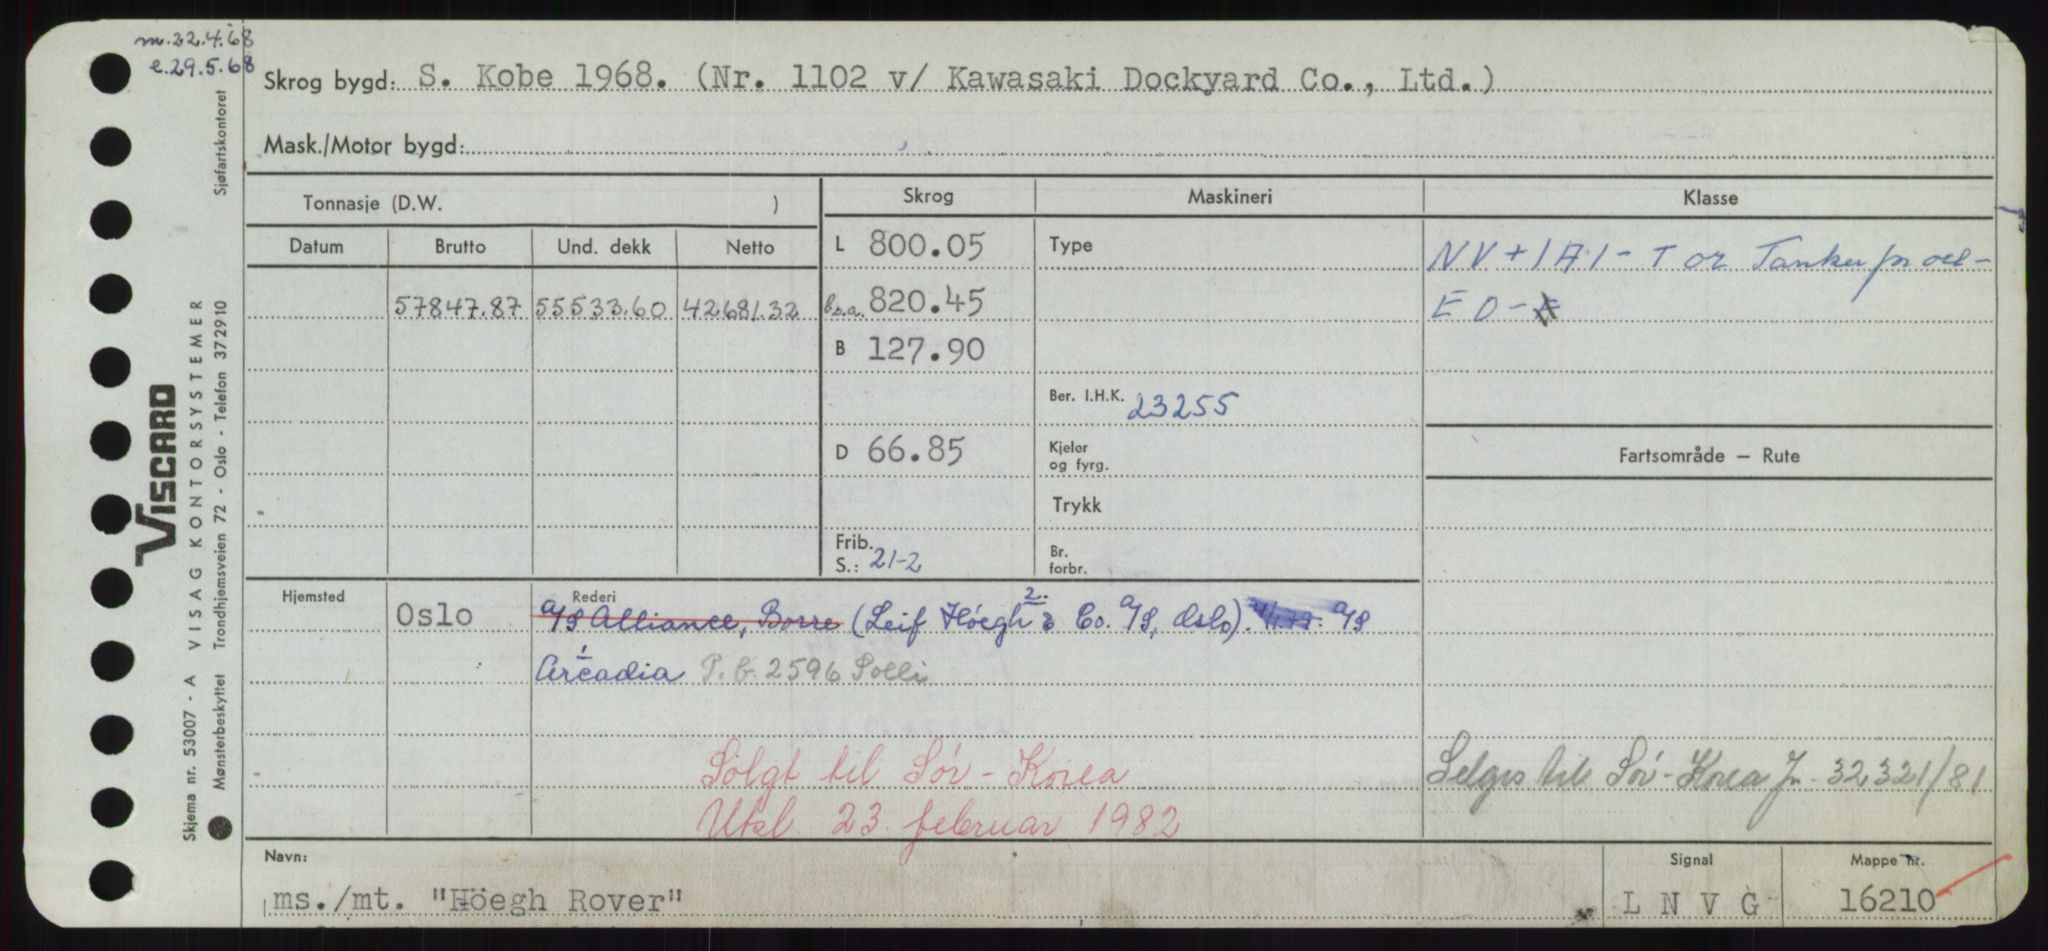 m.22.4.68
e.29.5.68
Skrog bygd: S. Kobe 1968. (Nr. 1102 v/ Kawasaki Dockyard Co., Ltd.)
Mask./Motor bygd:
Tonnasje (D.W. )
Datum Brutto Und. dekk Netto
57847.87 55533.60 42681.32
Skrog
L 800.05
b.o.a. 820.45
B 127.90
D 66.85
Frib.
S.: 21-2
Maskineri
Type
Ber. I.H.K. 23255
Kjeler
og fyrg.
Trykk
Br.
forbr.
Klasse
NV + 1A1 - T or Tanker for oil -
E O -
Fartsområde — Rute
Selges til Sør-Korea Jn. 32321/81
Hjemsted Rederi
Oslo A/S Alliance, Borre (Leif Höegh 2. & Co. A/S, Oslo). A/S
1
Arcadia P.b. 2596 Solli
Solgt til Sør-Korea
Utsl. 23. februar 1982
Navn:
ms./mt. "Höegh Rover"
Signal
L N V G
Mappe nr.
16210
Sjøfartskontoret
VISCARD
VISAG KONTORSYSTEMER
Trondhjemsveien 72 - Oslo - Telefon 372910
Skjema nr. 53007 - A
Mønsterbeskyttet